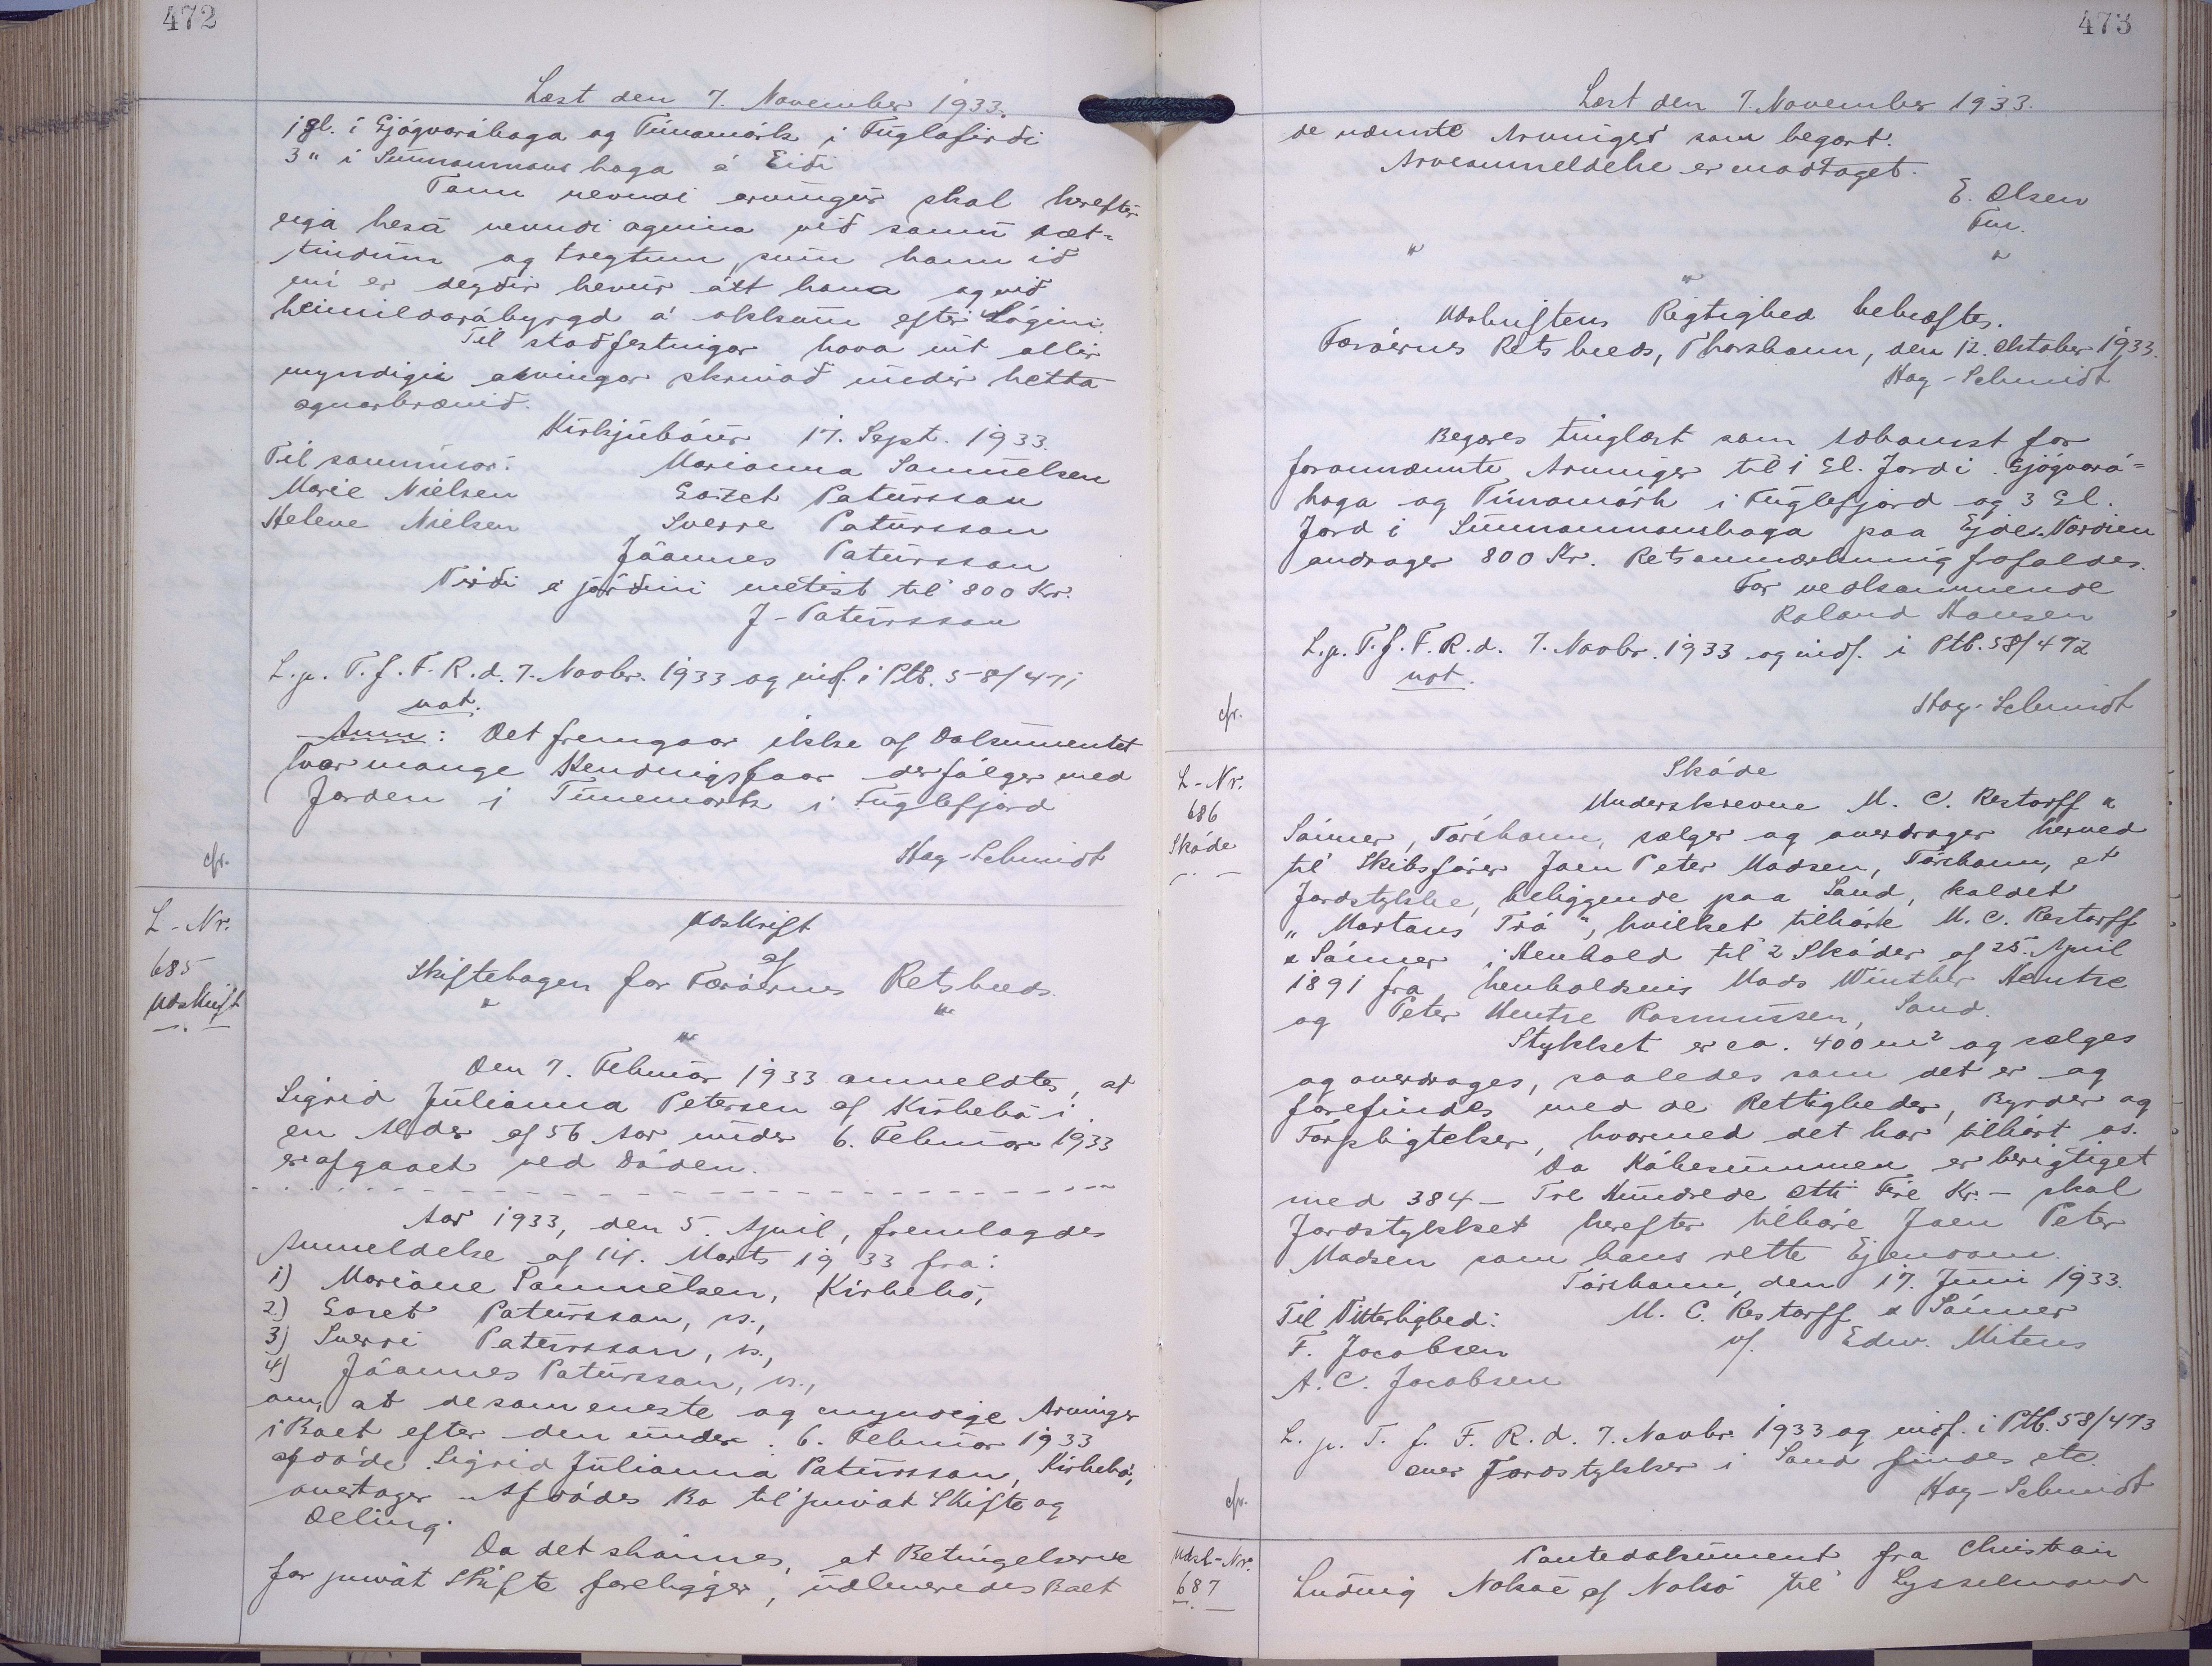 472
Læst den 7. November 1933.
1 gl. í Gjógvaráhaga og Túnamørk í Fuglafirði
3 " í Sunnanmanshaga á Eiði
Tann nevndi arvingur skal hereftir
eiga hesa nevndu ognina við somu ræt-
tindum og treytum, sum hann ið
nú er deyður hevur átt hana og við
heimildarábyrgd á okkum eftir lógini.
Til staðfestingar hava vit allir
myndigir arvingar skrivað undir hetta
ognarbrævið.
Kirkjubøur 17. Sept. 1933.
Til sannunar:
Marianna Samuelsen
Marie Nielsen
Gazet Patursson
Helene Nielsen
Sverre Patursson
Jóannes Patursson
Virði á jørðini metist til 800 Kr.
J. Patursson
L. p. T. f. F. R. d. 7. Novbr. 1933 og indf. i Ptb. 58/471
not.
Anm: Det fremgaar ikke af Dokumentet
hvor mange Hendnigsfaar der følger med
Jorden i Tunemørk i Fuglefjord
cfr.
Hag-Schmidt
L-Nr.
685
Udskrift
Udskrift
af
Skiftebogen for Færøernes Retskreds.
" " "
Den 7. Februar 1933 anmeldtes, at
Sigrid Julianna Petersen af Kirkebø i
en Alder af 56 Aar under 6. Februar 1933
er afgaaet ved Døden.
Aar 1933, den 5. April, fremlagdes
Anmeldelse af 14. Marts 1933 fra:
1) Mariane Samuelsen, Kirkebø,
2) Goret Patursson, s.,
3) Sverri Patursson, s.,
4) Jóannes Patursson, s.,
om, at de som eneste og myndige Arvinger
i Boet efter den under 6. Februar 1933
afdøde Sigrid Julianna Patursson, Kirkebø,
overtager Afdødes Bo til privat Skifte og
Deling.
Da det skønnes, at Betingelserne
for privat Skifte foreligger, udleveredes Boet
473
Læst den 7. November 1933.
de nævnte Arvinger som begært.
Arveanmeldelse er modtaget.
E. Olsen
Fm.
" " "
Udskriftens Rigtighed bekræftes.
Færøernes Retskreds, Thorshavn, den 12. Oktober 1933.
Hag-Schmidt
Begæres tinglæst som Adkomst for
forannævnte Arvinger til 1 Gl. Jord i Gjógvará-
haga og Túnamørk i Fuglefjord og 3 Gl.
Jord i Sunnanmanshaga paa Ejde. Værdien
andrager 800 Kr. Retsanmærkning frafaldes.
For vedkommende
Roland Hansen
L. p. T. f. F. R. d. 7. Novbr. 1933 og indf. i Ptb. 58/472
not.
cfr.
Hag-Schmidt
L-Nr.
686
Skøde
Skøde
Underskrevne M. C. Restorff &
Sønner, Tórshavn, sælger og overdrager herved
til Skibsfører Joen Peter Madsen, Tórshavn, et
Jordstykke, beliggende paa Sand, kaldet
„Martans Trø", hvilket tilhørte M. C. Restorff
& Sønner i Henhold til 2 Skøder af 25. April
1891 fra henholdsvis Mads Winther Hentze
og Peter Hentze Rasmussen, Sand.
Stykket er ca. 400 m² og sælges
og overdrages, saaledes som det er og
forefindes med de Rettigheder, Byrder og
Forpligtelser, hvormed det har tilhørt os.
Da Købesummen er berigtiget
med 384 - Tre Hundrede Otti Fire Kr. - skal
Jordstykket herefter tilhøre Joen Peter
Madsen som hans rette Ejendom.
Tórshavn, den 17. Juni 1933.
Til Vitterlighed:
M. C. Restorff & Sønner
F. Jacobsen
v/. Edw. Mitens
A. C. Jacobsen
L. p. T. f. F. R. d. 7. Novbr. 1933 og indf. i Ptb. 58/473
over Jordstykker i Sand findes etc.
cfr.
Hag-Schmidt
Udsl-Nr.
687
Pantedokument fra Christian
Ludvig Nolsøe af Nolsø til Sysselmand